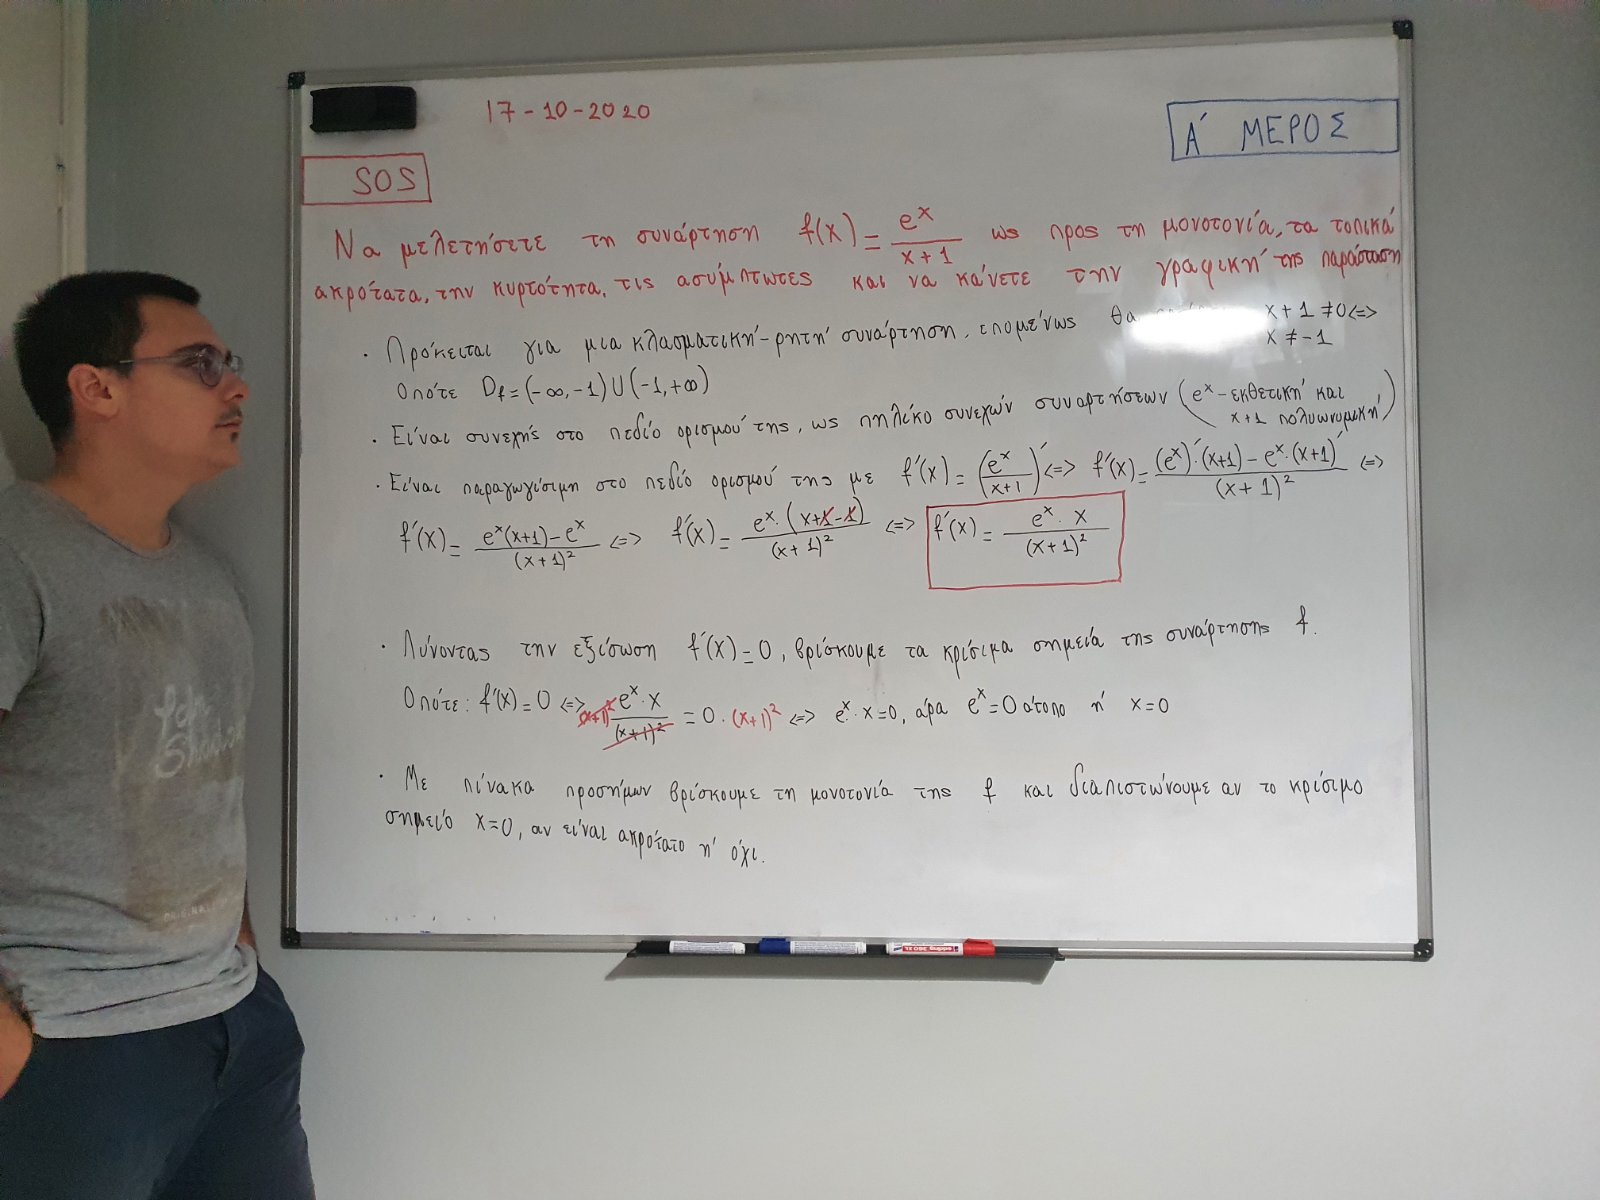 17-10-2020
Α΄ ΜΕΡΟΣ
SOS
Να μελετήσετε τη συνάρτηση f(x) = e^x/(x+1) ως προς τη μονοτονία, τα τοπικά
ακρότατα, την κυρτότητα, τις ασύμπτωτες και να κάνετε την γραφική της παράσταση
· Πρόκειται για μια κλασματική-ρητή συνάρτηση, επομένως θα x+1≠0 <=>
x≠-1
Οπότε Df=(-∞,-1)∪(-1,+∞)
· Είναι συνεχής στο πεδίο ορισμού της, ως πηλίκο συνεχών συναρτήσεων (e^x-εκθετική και
x+1 πολυωνυμική)
· Είναι παραγωγίσιμη στο πεδίο ορισμού της με f΄(x) = (e^x/(x+1))΄ <=> f΄(x) = ((e^x)΄·(x+1) - e^x·(x+1)΄)/(x+1)² <=>
f΄(x) = (e^x(x+1)-e^x)/(x+1)² <=> f΄(x) = (e^x·(x+1-1))/(x+1)² <=> f΄(x) = (e^x·x)/(x+1)²
· Λύνοντας την εξίσωση f΄(x)=0, βρίσκουμε τα κρίσιμα σημεία της συνάρτησης f.
Οπότε: f΄(x)=0 <=> (x+1)² (e^x·x)/(x+1)² = 0·(x+1)² <=> e^x·x=0, άρα e^x=0 άτοπο ή x=0
· Με πίνακα προσήμων βρίσκουμε τη μονοτονία της f και διαπιστώνουμε αν το κρίσιμο
σημείο x=0, αν είναι ακρότατο ή όχι.